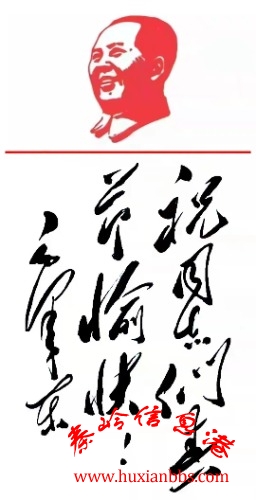 祝同志们春
节愉快！
毛泽东
秦岭信息港
www.huxianbbs.com